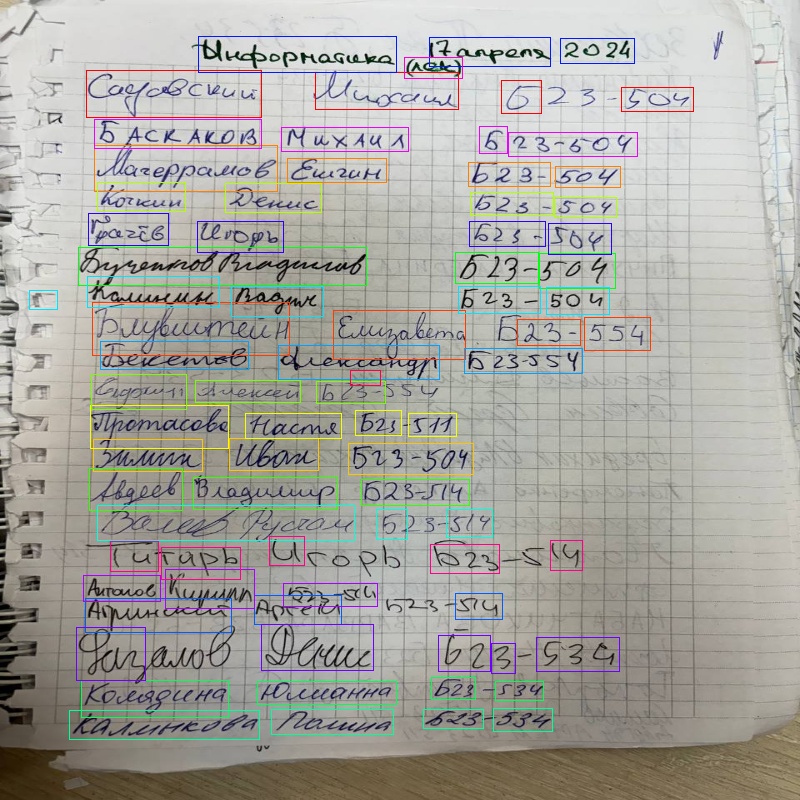 Информатика 17 апреля 2024
(лек)
Садовский Михаил Б23-504
БАСКАКОВ МИХАИЛ Б23-504
Магеррамов Б23-504
Кочкин Денис Б23-504
Грачёв Игорь Б23-504
Владислав Б23-504
Калинин Вадим Б23-504
Блувштейн Елизавета Б23-554
Бекетов Александр Б23-554
Алексей Б23-554
Протасова Настя Б23-511
Зимин Иван Б23-504
Авдеев Владимир Б23-514
Валеев Рустам Б23-514
Титарь Игорь Б23-514
Антонов Кирилл Б23-514
Агринский Артём Б23-514
Фазалов Денис Б23-534
Колядина Юлианна Б23-534
Калинкова Полина Б23-534